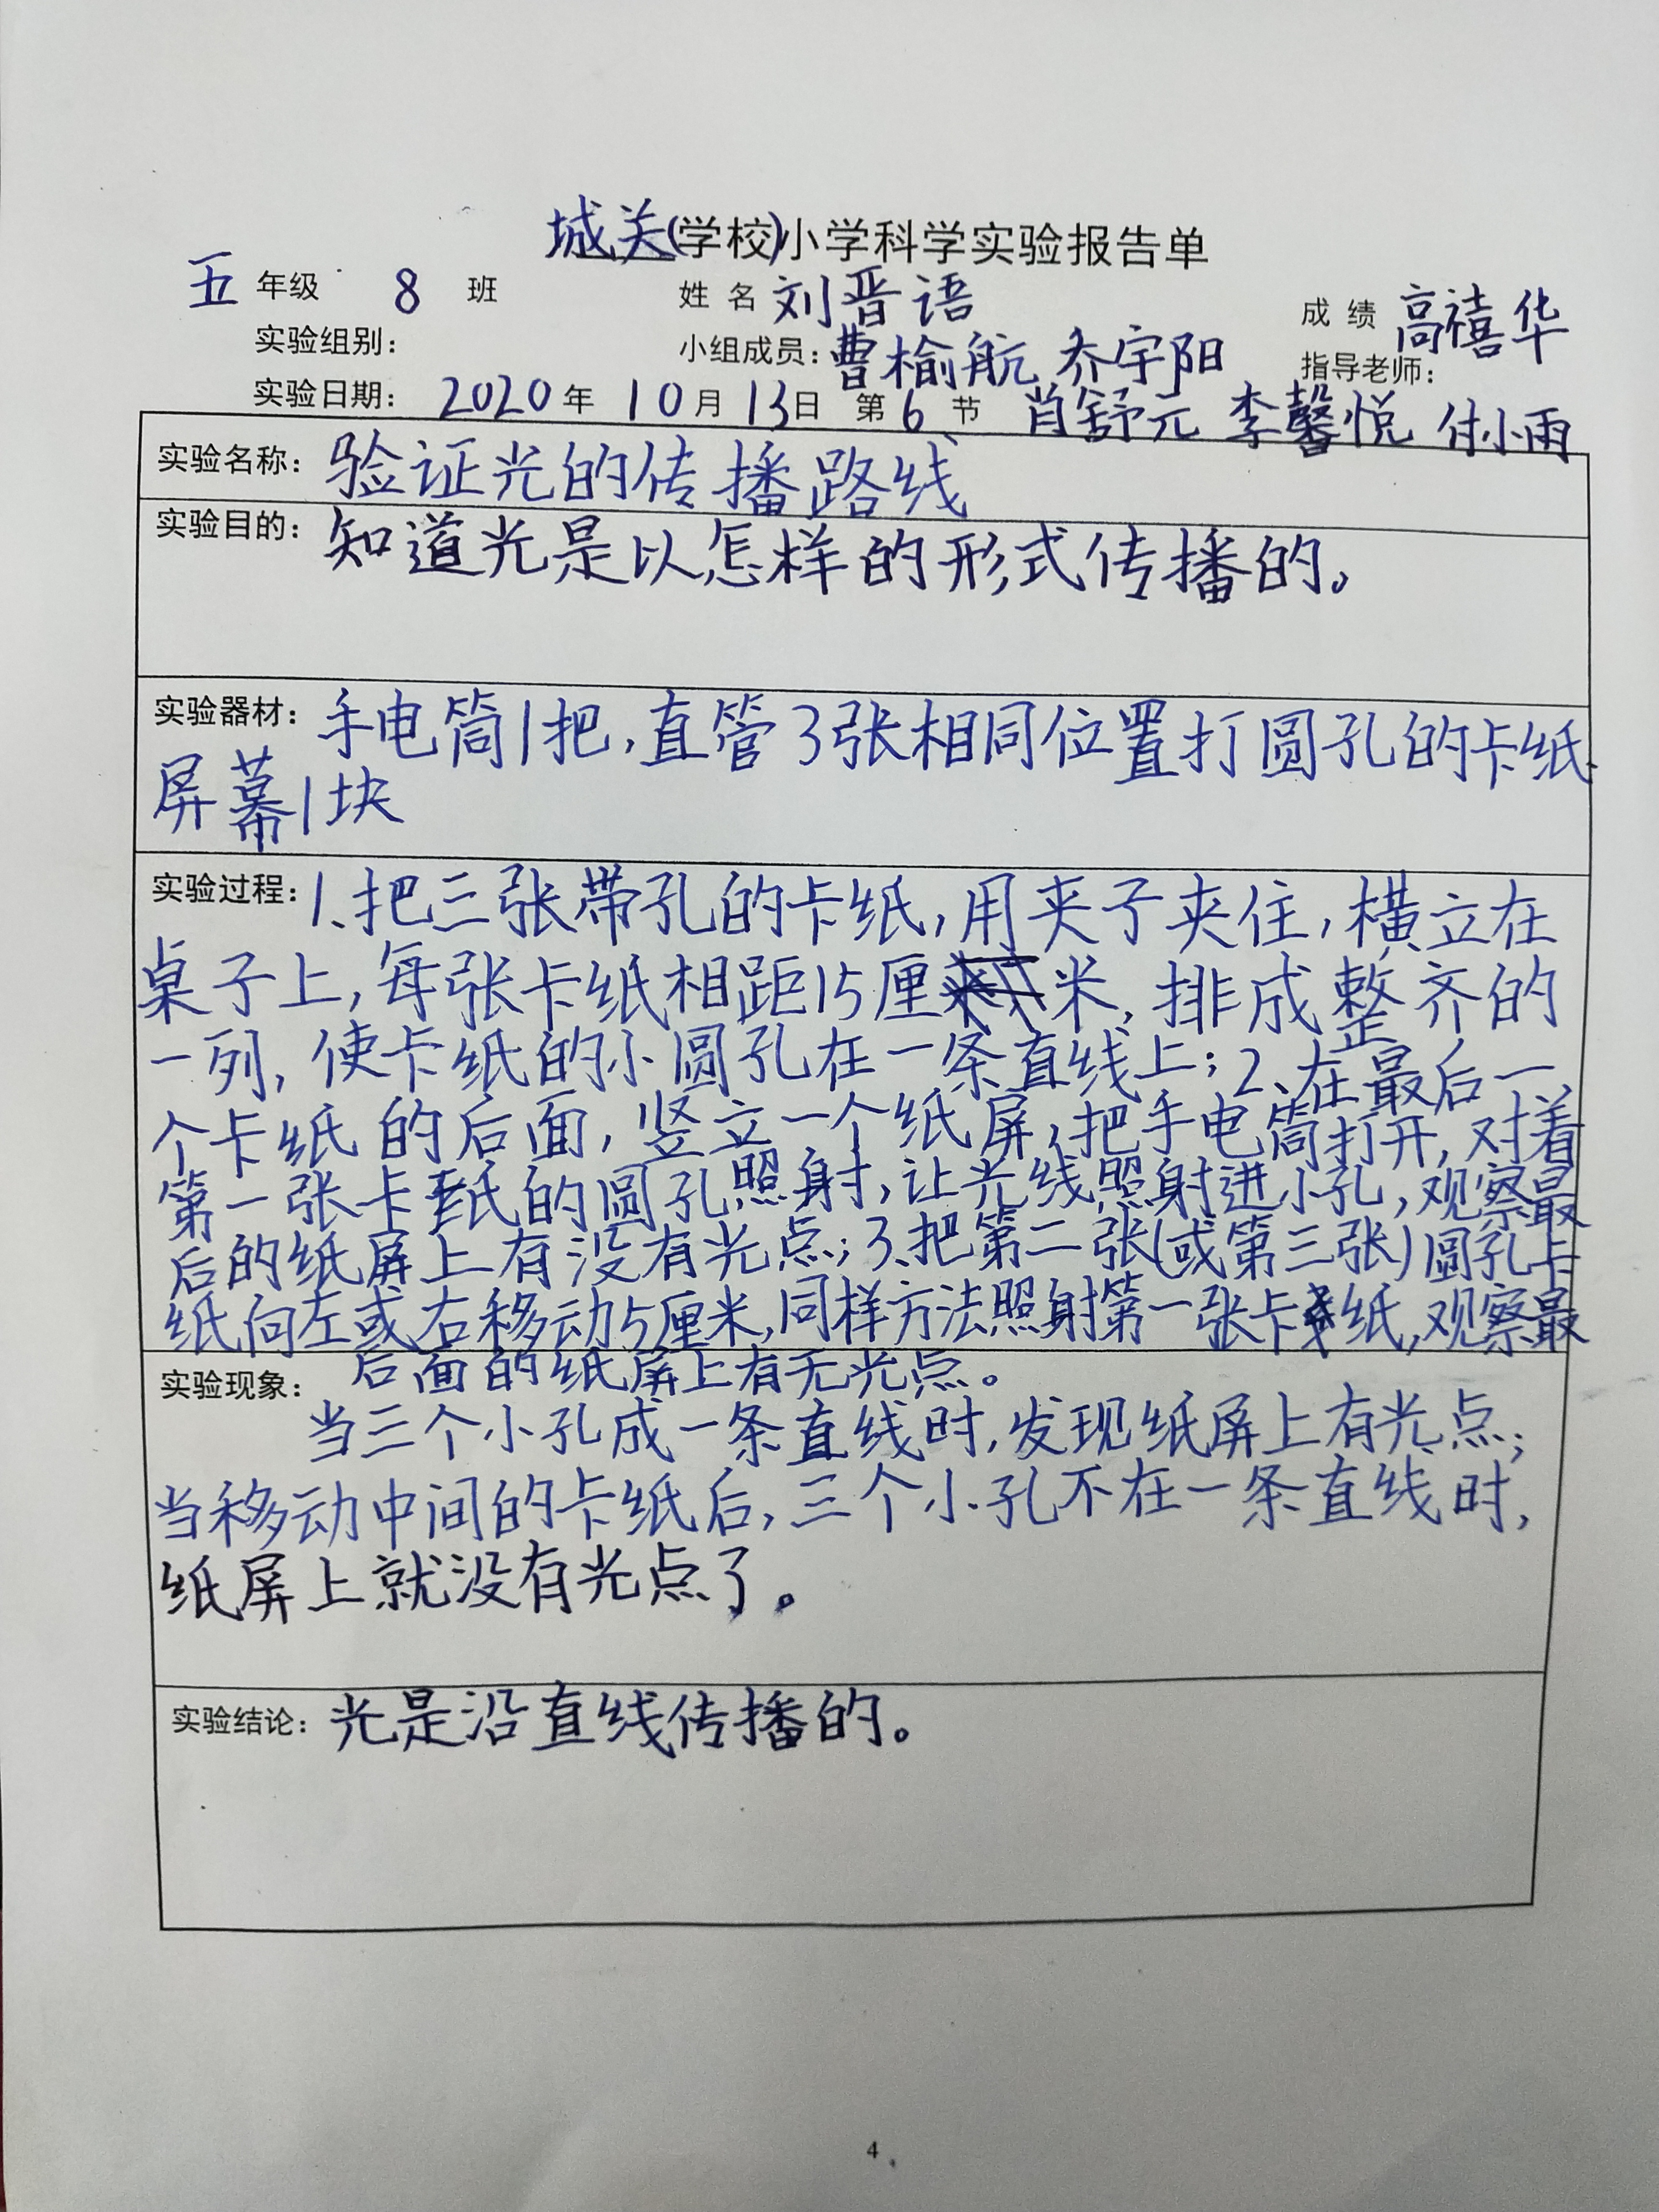 城关(学校)小学科学实验报告单
五 年级 8 班 姓 名 刘晋语 成 绩 高禧华
实验组别： 小组成员：曹榆航 乔宇阳 指导老师：
实验日期： 2020年 10月 13日 第6节 肖舒元 李馨悦 付小雨
实验名称：验证光的传播路线
实验目的：知道光是以怎样的形式传播的。
实验器材：手电筒1把，直管3张相同位置打圆孔的卡纸
屏幕1块
实验过程：1、把三张带孔的卡纸，用夹子夹住，横立在
桌子上，每张卡纸相距15厘米，排成整齐的
一列，使卡纸的小圆孔在一条直线上；2、在最后一
个卡纸的后面，竖立一个纸屏，把手电筒打开，对着
第一张卡纸的圆孔照射，让光线照射进小孔，观察最
后的纸屏上有没有光点；3、把第二张(或第三张)圆孔卡
纸向左或右移动5厘米，同样方法照射第一张卡纸，观察最
后面的纸屏上有无光点。
实验现象：
当三个小孔成一条直线时，发现纸屏上有光点；
当移动中间的卡纸后，三个小孔不在一条直线时，
纸屏上就没有光点了。
实验结论：光是沿直线传播的。
4